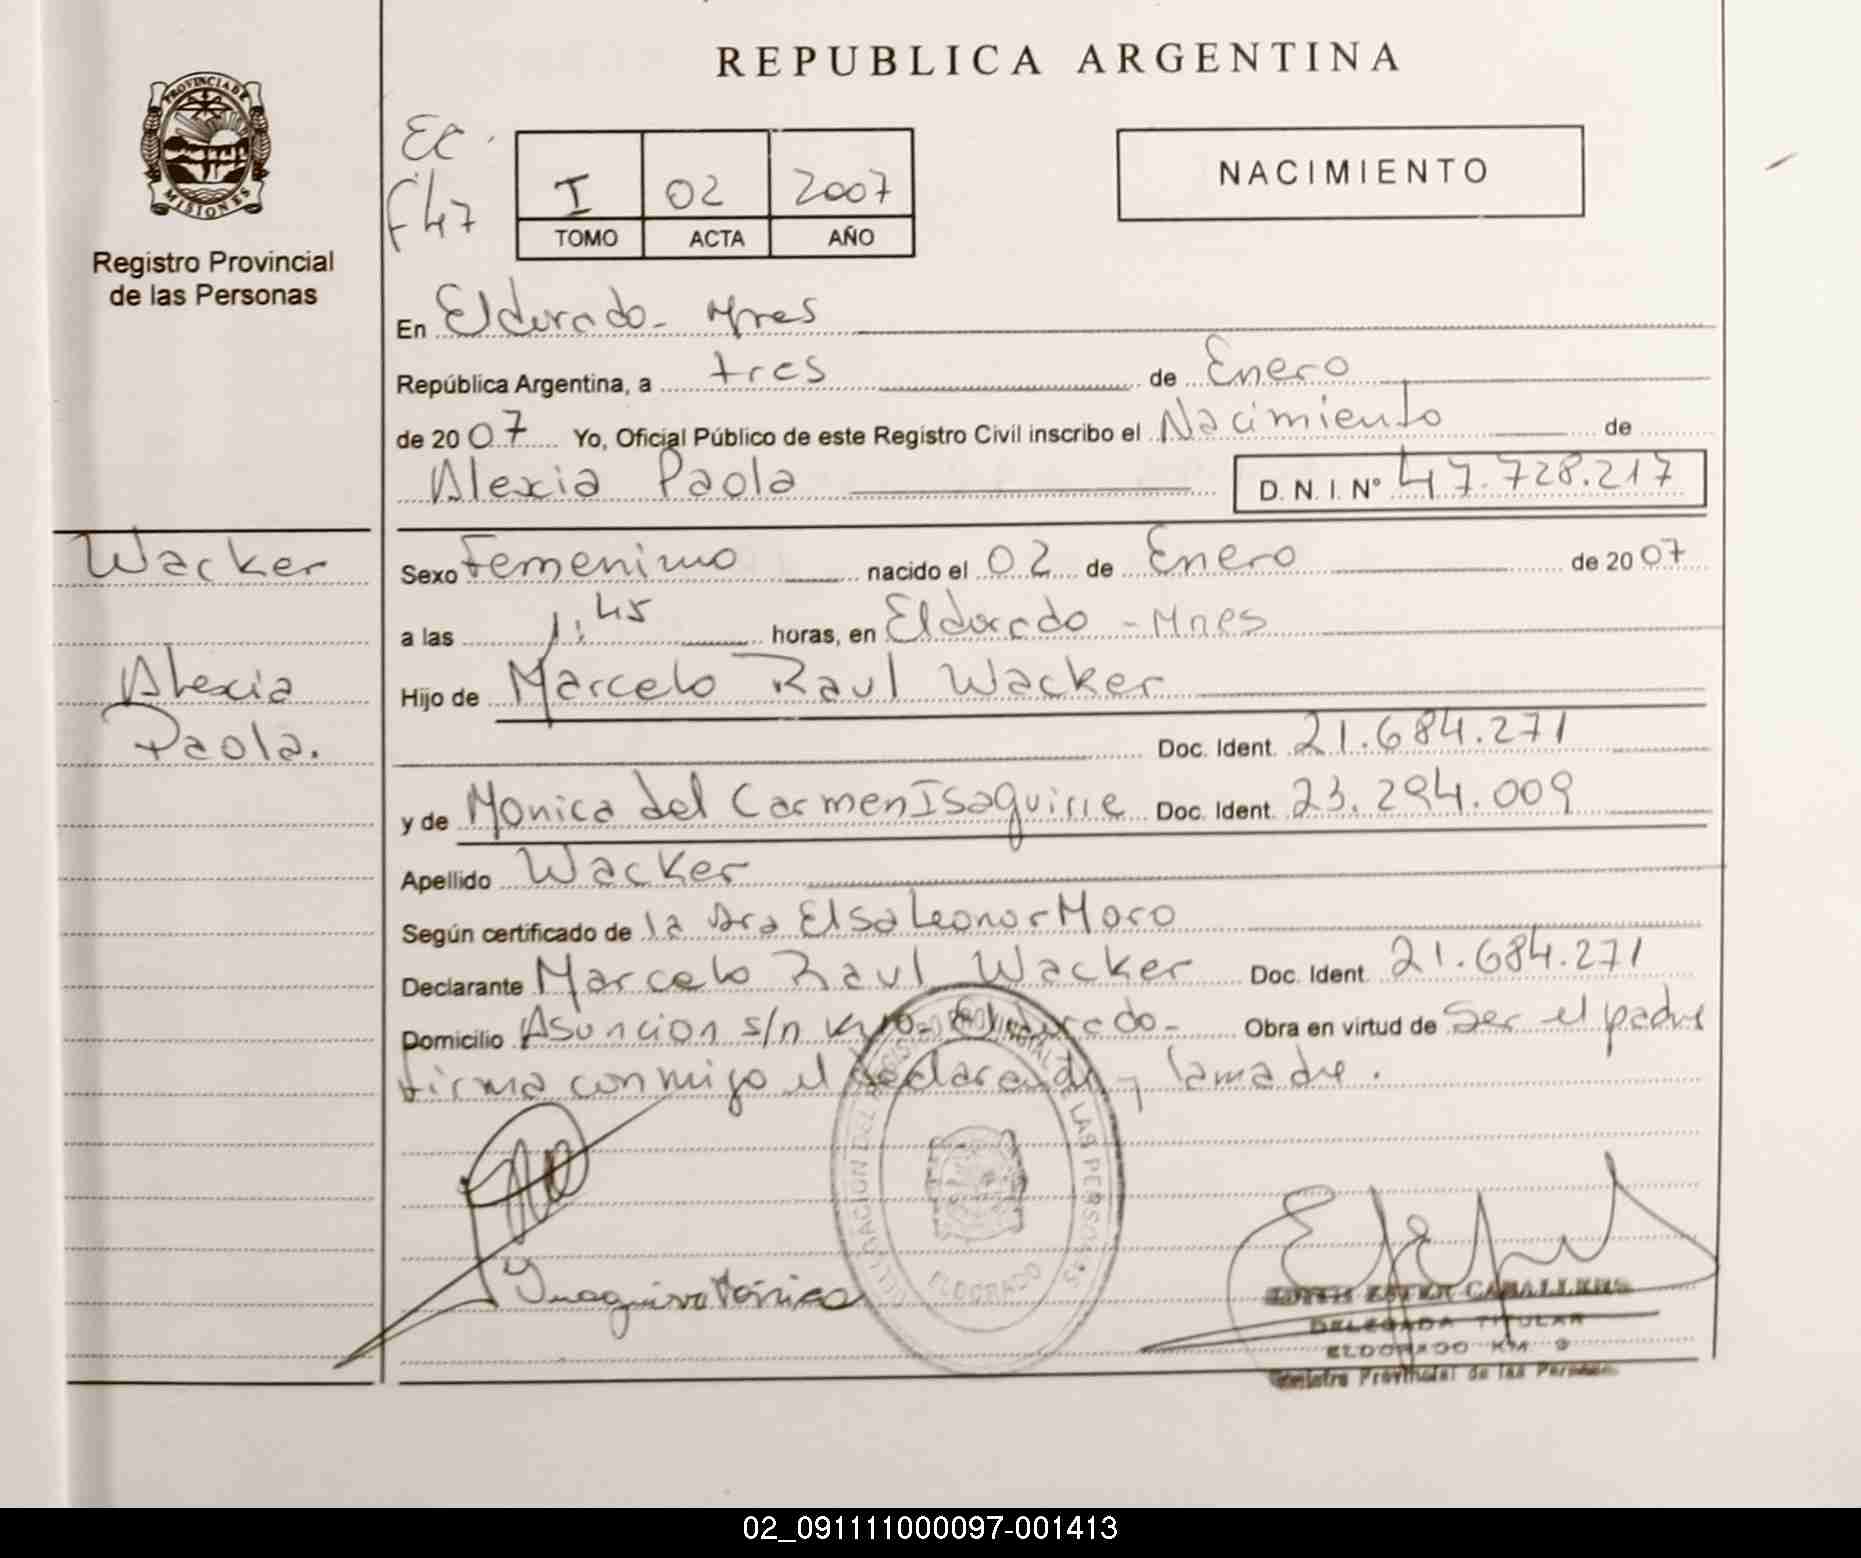 REPUBLICA ARGENTINA
PROVINCIA DE
MISIONES
Registro Provincial
de las Personas
EC.
F47
I 02 2007
TOMO ACTA AÑO
NACIMIENTO
En Eldorado - Mnes
República Argentina, a tres de Enero
de 2007 Yo, Oficial Público de este Registro Civil inscribo el Nacimiento de
Alexia Paola D. N. I. Nº 47.728.217
Wacker
Alexia
Paola.
Sexo Femenino nacido el 02 de Enero de 2007
a las 1:45 horas, en Eldorado - Mnes
Hijo de Marcelo Raul Wacker
Doc. Ident. 21.684.271
y de Monica del Carmen Isaguirre Doc. Ident. 23.294.009
Apellido Wacker
Según certificado de la dra Elsa Leonor Moro
Declarante Marcelo Raul Wacker Doc. Ident. 21.684.271
Domicilio Asuncion s/n Eldorado - Obra en virtud de Ser el padre
firma conmigo el declarante y la madre.
DELEGACION DEL REGISTRO PROVINCIAL DE LAS PERSONAS
ELDORADO
EDITH ESTER CABALLERO
DELEGADA TITULAR
ELDORADO KM 9
Registro Provincial de las Personas
02_091111000097-001413